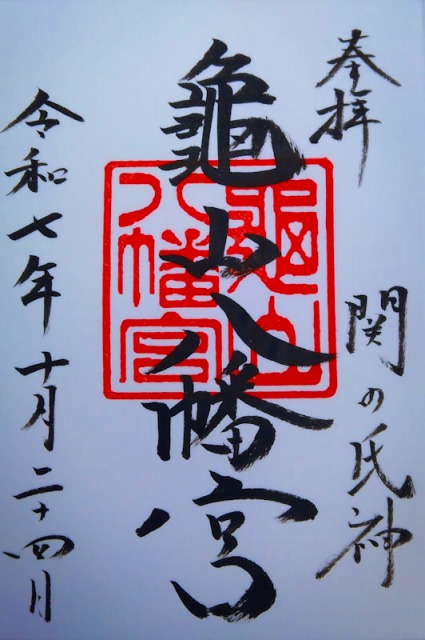 奉拝
関の氏神
龜山八幡宮
龜山
八幡宮
令和七年十月二十四日